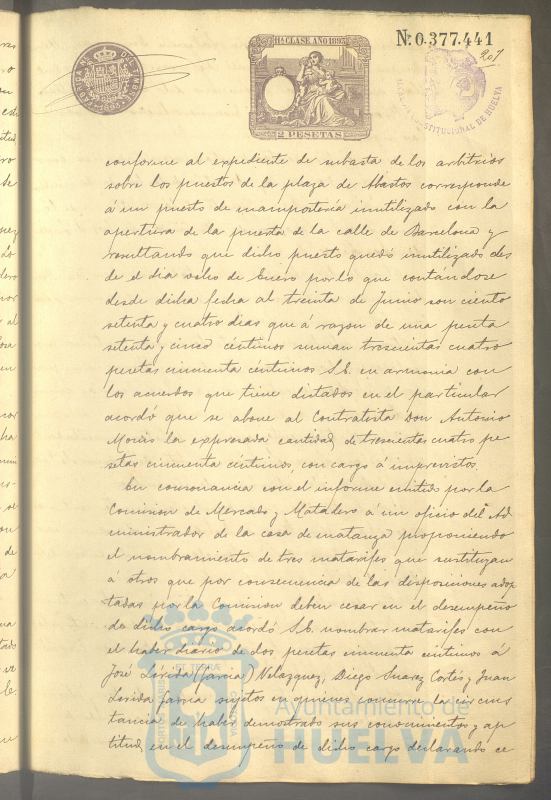 Nº 0.377.441
207
11ª CLASE AÑO 1895
2 PESETAS
CONSTITUCIONAL DE HUELVA
conforme al expediente de subasta de los arbitrios
sobre los puestos de la plaza de Abastos corresponde
á un puesto de mamposteria inutilizado con la
apertura de la puerta de la calle de Barcelona y
resultando que dicho puesto quedó inutilizado des
de el dia ocho de Enero por lo que contándose
desde dicha fecha al treinta de Junio son ciento
setenta y cuatro dias que á razon de una peseta
setenta y cinco céntimos suman trescientas cuatro
pesetas cincuenta céntimos S.E. en armonia con
los acuerdos que tiene dictados en el particular
acordó que se abone al Contratista Don Antonio
Morás la expresada cantidad de trescientas cuatro pe
setas cincuenta céntimos, con cargo á imprevistos.
En consonancia con el informe emitido por la
Comision de Mercado y Matadero á un oficio del Ad
ministrador de la casa de matanza proponiendo
el nombramiento de tres matarifes que sustituyan
á otros que por consecuencia de las disposiciones adop
tadas por la Comision deben cesar en el desempeño
de dicho cargo acordó S.E. nombrar matarifes con
el haber diario de dos pesetas cincuenta céntimos á
José Lérida (Garcia) Velazquez, Diego Suarez Cortés y Juan
Lerida Garcia sujetos en quienes concurre la circuns
tancia de haber demostrado sus conocimientos y ap
titud en el desempeño de dicho cargo declarando ce
Ayuntamiento de
HUELVA